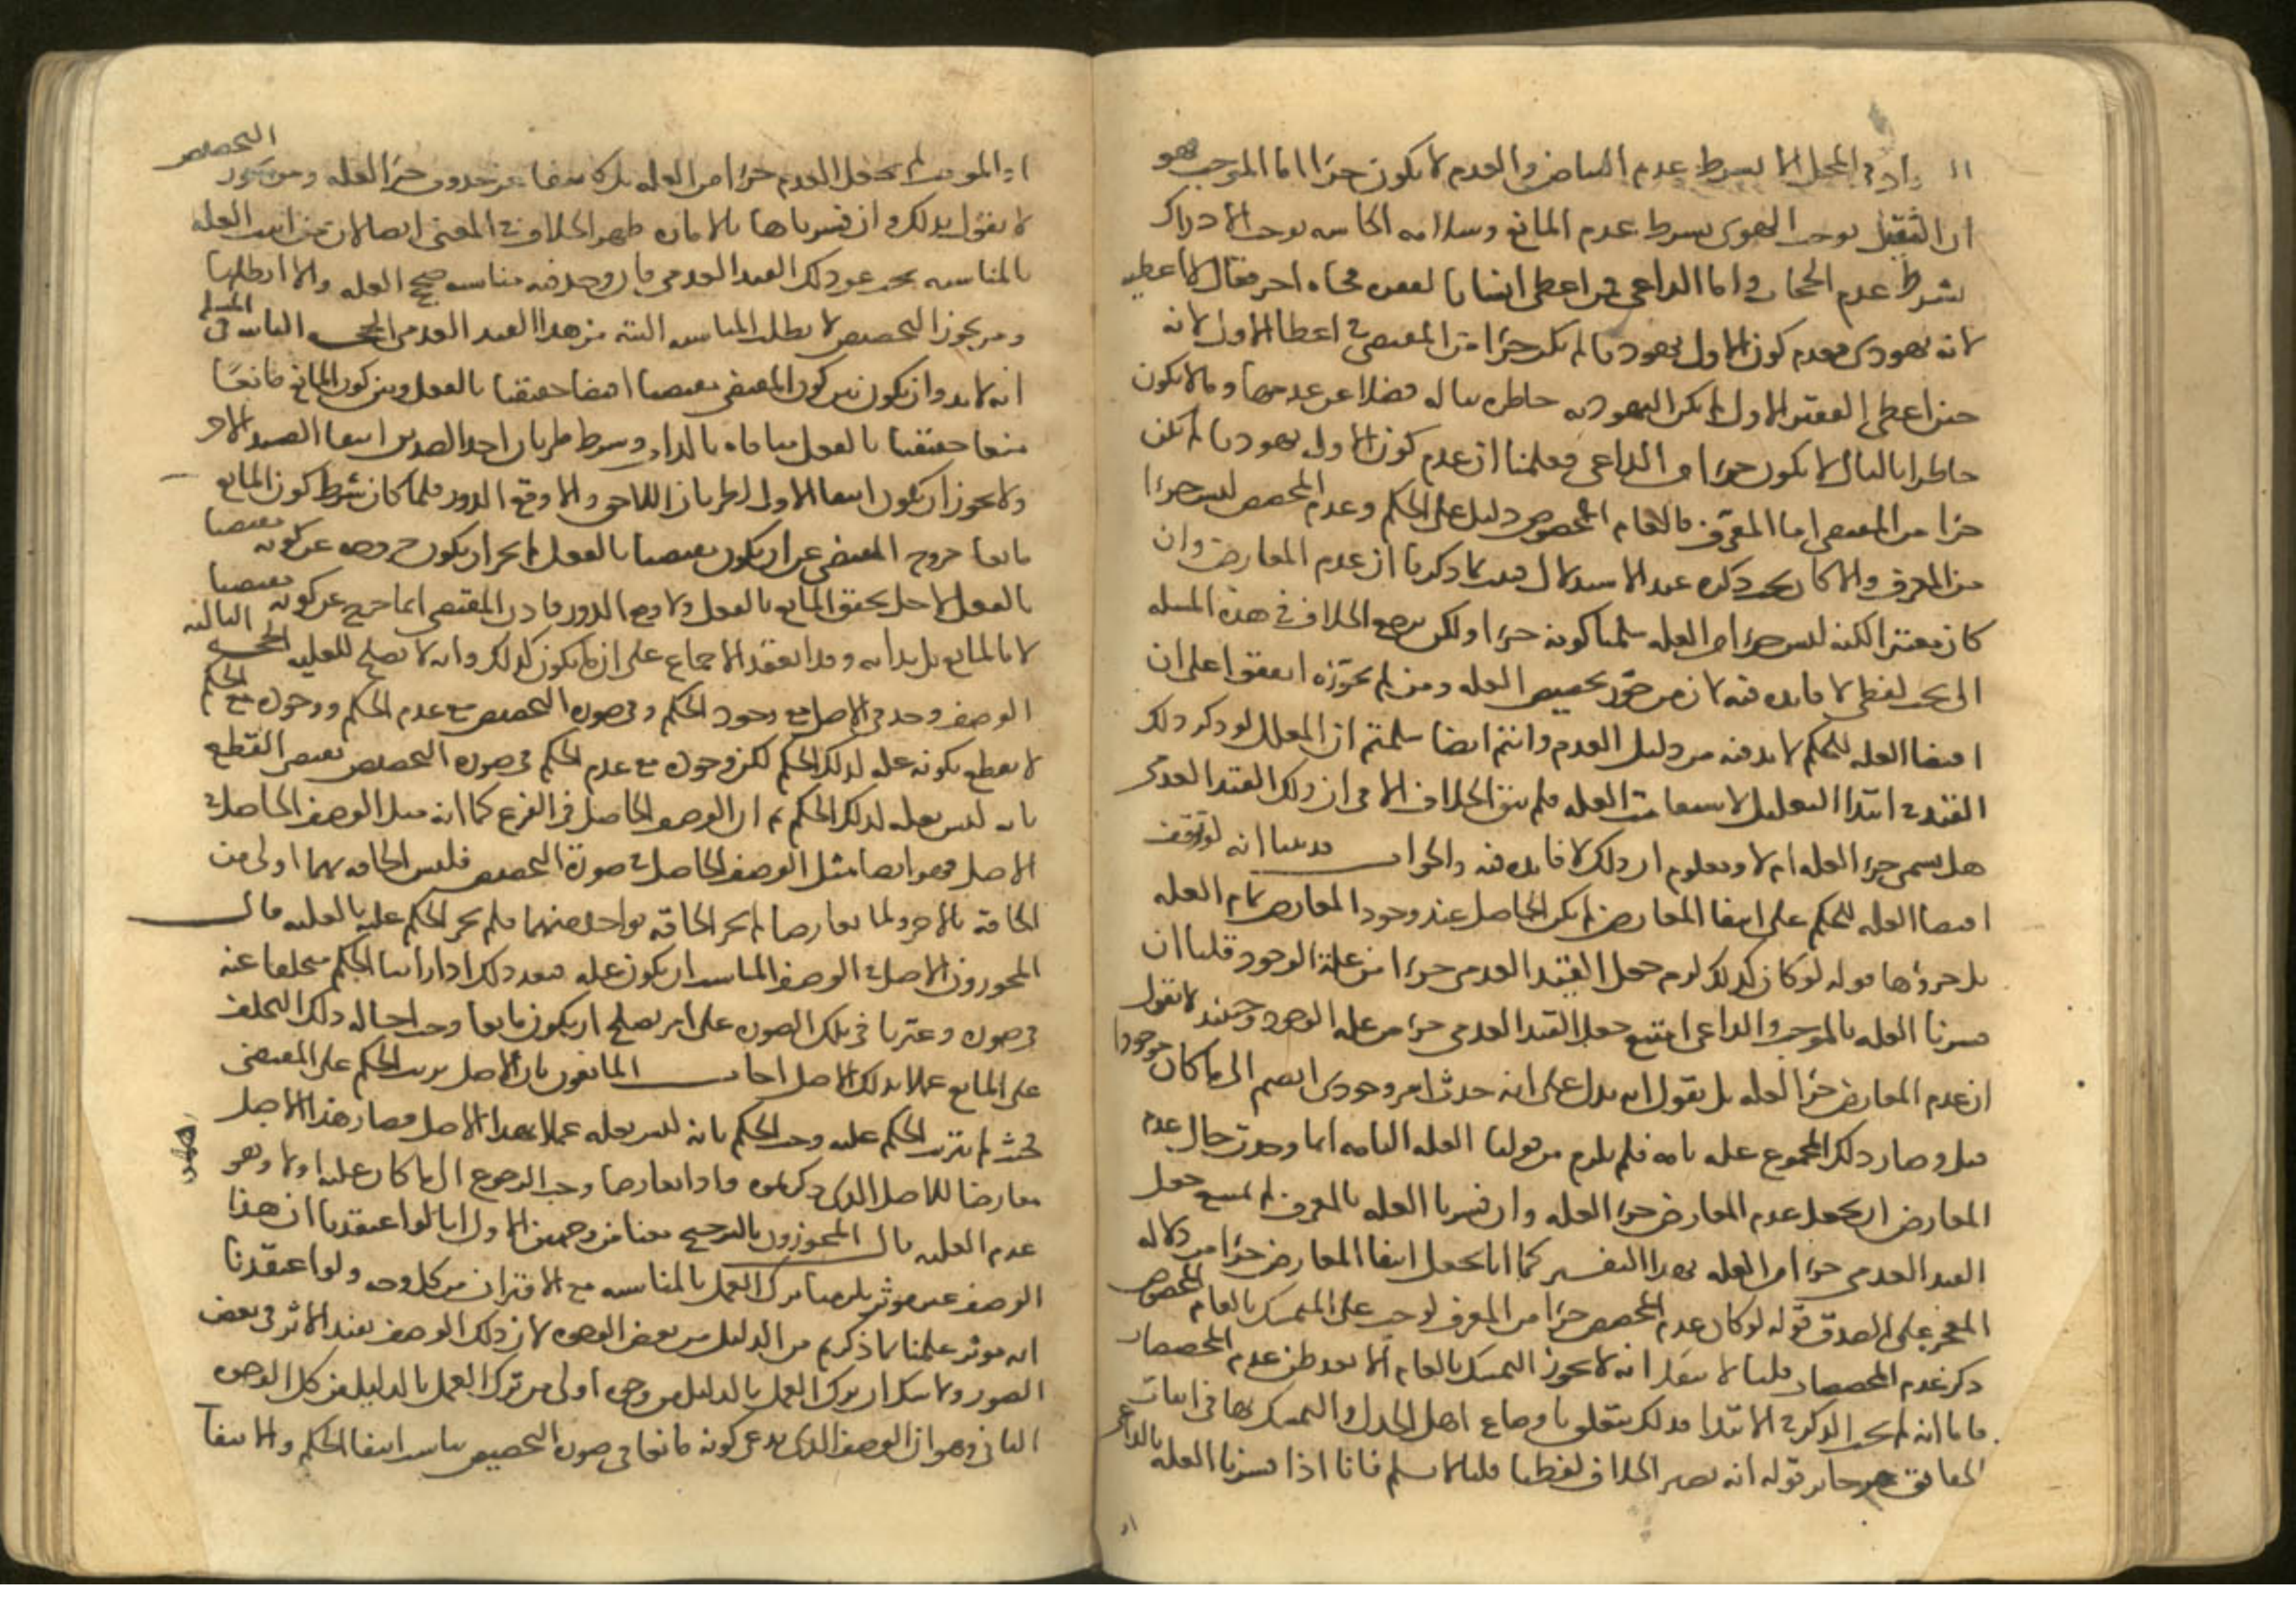 السواد في المحل إلا بشرط عدم البياض والعدم لا يكون جزءا اما الموجب فهو
ان الثقيل يوجب الهوى بشرط عدم المانع وسلامه الحاسه توجب الادراك
بشرط عدم الحجاب واما الداعي فمن اعطى انسانا لفقره فجاه اخر فقال لا اعطيه
لانه يهودي فعدم كون الاول يهوديا لم يكن جزءا من المقتضي في اعطا الاول لانه
حين اعطى الفقير الاول لم تكن اليهوديه خاطره بباله فضلا عن عدمها وما لا يكون
خاطرا بالبال لا يكون جزءا من الداعي فعلمنا ان عدم كون الاول يهوديا لم يكن
جزءا من المقتضي اما المعرّف فالعام المخصوص دليل على الحكم وعدم المخصص ليس جزءا
من المعرف والا كان يجب ذكره عند الاستدلال فثبت بما ذكرنا ان عدم المعارض وان
كان معتبرا لكنه ليس جزءا من العله سلمنا كونه جزءا ولكن يرجع الخلاف في هذه المسله
الى بحث لفظي لا فايده فيه لان من جوّز تخصيص العله ومن لم يجوّزه اتفقوا على ان
اقتضا العله للحكم لا بد فيه من دليل العدم وانتم ايضا سلمتم ان المعلل لو ذكر ذلك
القيد في ابتدا التعليل لاستقامت العله فلم يبق الخلاف الا في ان ذلك القيد العدمي
هل يسمى جزء العله ام لا ومعلوم ان ذلك لا فايده فيه والجواب قد بينا انه لو توقف
اقتضا العله للحكم على انتفا المعارض لم يكن الحاصل عند وجود المعارض تمام العله
بل جزؤها قوله لو كان كذلك لزم جعل القيد العدمي جزءا من علة الوجود قلنا ان
فسرنا العله بالموجب والداعي امتنع جعل القيد العدمي جزءا من عله الوجود وحينئذ لا نقول
ان عدم المعارض جزء العله بل نقول انه يدل على انه حدث امر وجودي انضم الى ما كان موجودا
قبل وصار ذلك المجموع عله تامه فلم يلزم من قولنا العله التامه انما وجدت حال عدم
المعارض ان يجعل عدم المعارض جزء العله وان فسرنا العله بالمعرف لم يمتنع جعل
القيد العدمي جزءا من العله بهذا التفسير كما انا نجعل انتفا المعارض جزءا من دلاله
المعجز على الصدق قوله لو كان عدم المخصص جزءا من المعرف لوجب على المتمسك بالعام المخصوص
ذكر عدم المخصصات قلنا لا شك انه لا يجوز التمسك بالعام الا بعد ظن عدم المخصصات
فاما انه لم يجب الذكر في الابتدا فذلك يتعلق باوضاع اهل الجدل والتمسك بها في اثبات
الحقايق غير جايز قوله انه يصير الخلاف لفظيا قلنا لا نسلم فانا اذا فسرنا العله بالداعي
او الموجب لم نجعل العدم جزءا من العله بل كاشفا عن حدوث جزء العله ومن يجوز التخصيص
لا يقول بذلك وان فسرناها بالاماره ظهر الخلاف في المعنى ايضا لان من اثبت العله
بالمناسبه بحث عن ذلك القيد العدمي فان وجد فيه مناسبه صحح العله والا ابطلها
ومن يجوز التخصيص لا يطلب المناسبه البته من هذا القيد العدمي الحجه الثانيه في المسله
انه لا بد وان يكون بين كون المقتضي مقتضيا اقتضا حقيقيا بالفعل وبين كون المانع مانعا
منعا حقيقيا بالفعل منافاه بالذات وشرط طريان احد الضدين انتفا الضد الاول
ولا يجوز ان يكون انتفا الاول لطريان اللاحق والا وقع الدور فلما كان شرط كون المانع
مانعا خروج المقتضي عن ان يكون مقتضيا بالفعل لم يجز ان يكون خروجه عن كونه مقتضيا
بالفعل لاجل تحقق المانع بالفعل والا وقع الدور فاذن المقتضي انما خرج عن كونه مقتضيا
لا بالمانع بل بذاته وقد انعقد الاجماع على ان ما يكون كذلك فانه لا يصلح للعليه الحجه الثالثه
الوصف وجد في الاصل مع وجود الحكم وفي صوره التخصيص مع عدم الحكم ووجوده مع الحكم
لا يقطع بكونه عله لذلك الحكم لكن وجوده مع عدم الحكم في صوره التخصيص يقتضي القطع
بانه ليس بعله لذلك الحكم ثم ان الوصف الحاصل في الفرع كما انه مثل الوصف الحاصل في
الاصل فهو ايضا مثل الوصف الحاصل في صورة التخصيص فليس الحاقه بهما اولى من
الحاقه بالاخر ولما تعارضا لم يجز الحاقه بواحد منهما فلم يجز الحكم عليه بالعليه قال
المجوزون الاصل في الوصف المناسب ان يكون عله فبعد ذلك اذا راينا الحكم متخلفا عنه
في صوره وعثرنا في تلك الصوره على امر يصلح ان يكون مانعا وجب احاله ذلك التخلف
على المانع عملا بذلك الاصل اجاب المانعون بان الاصل ترتب الحكم على المقتضي
فحيث لم يترتب الحكم عليه وجب الحكم بانه ليس بعله عملا بهذا الاصل فصار هذا الاصل
معارضا للاصل الذي ذكرتموه واذا تعارضا وجب الرجوع الى ما كان عليه اولا وهو
عدم العليه قال المجوزون الترجيح معنا من وجهين الاول انا لو اعتقدنا ان هذا
الوصف غير موثر يلزمنا ترك العمل بالمناسبه مع الاقتران من كل وجه ولو اعتقدنا
انه موثر عملنا بما ذكرتم من الدليل من بعض الوجوه لان ذلك الوصف يفيد الاثر في بعض
الصور ولا شك ان ترك العمل بالدليل من وجه اولى من ترك العمل بالدليل من كل الوجوه
الثاني وهو ان الوصف الذي ندعي كونه مانعا في صوره التخصيص يناسب انتفا الحكم والانتفا